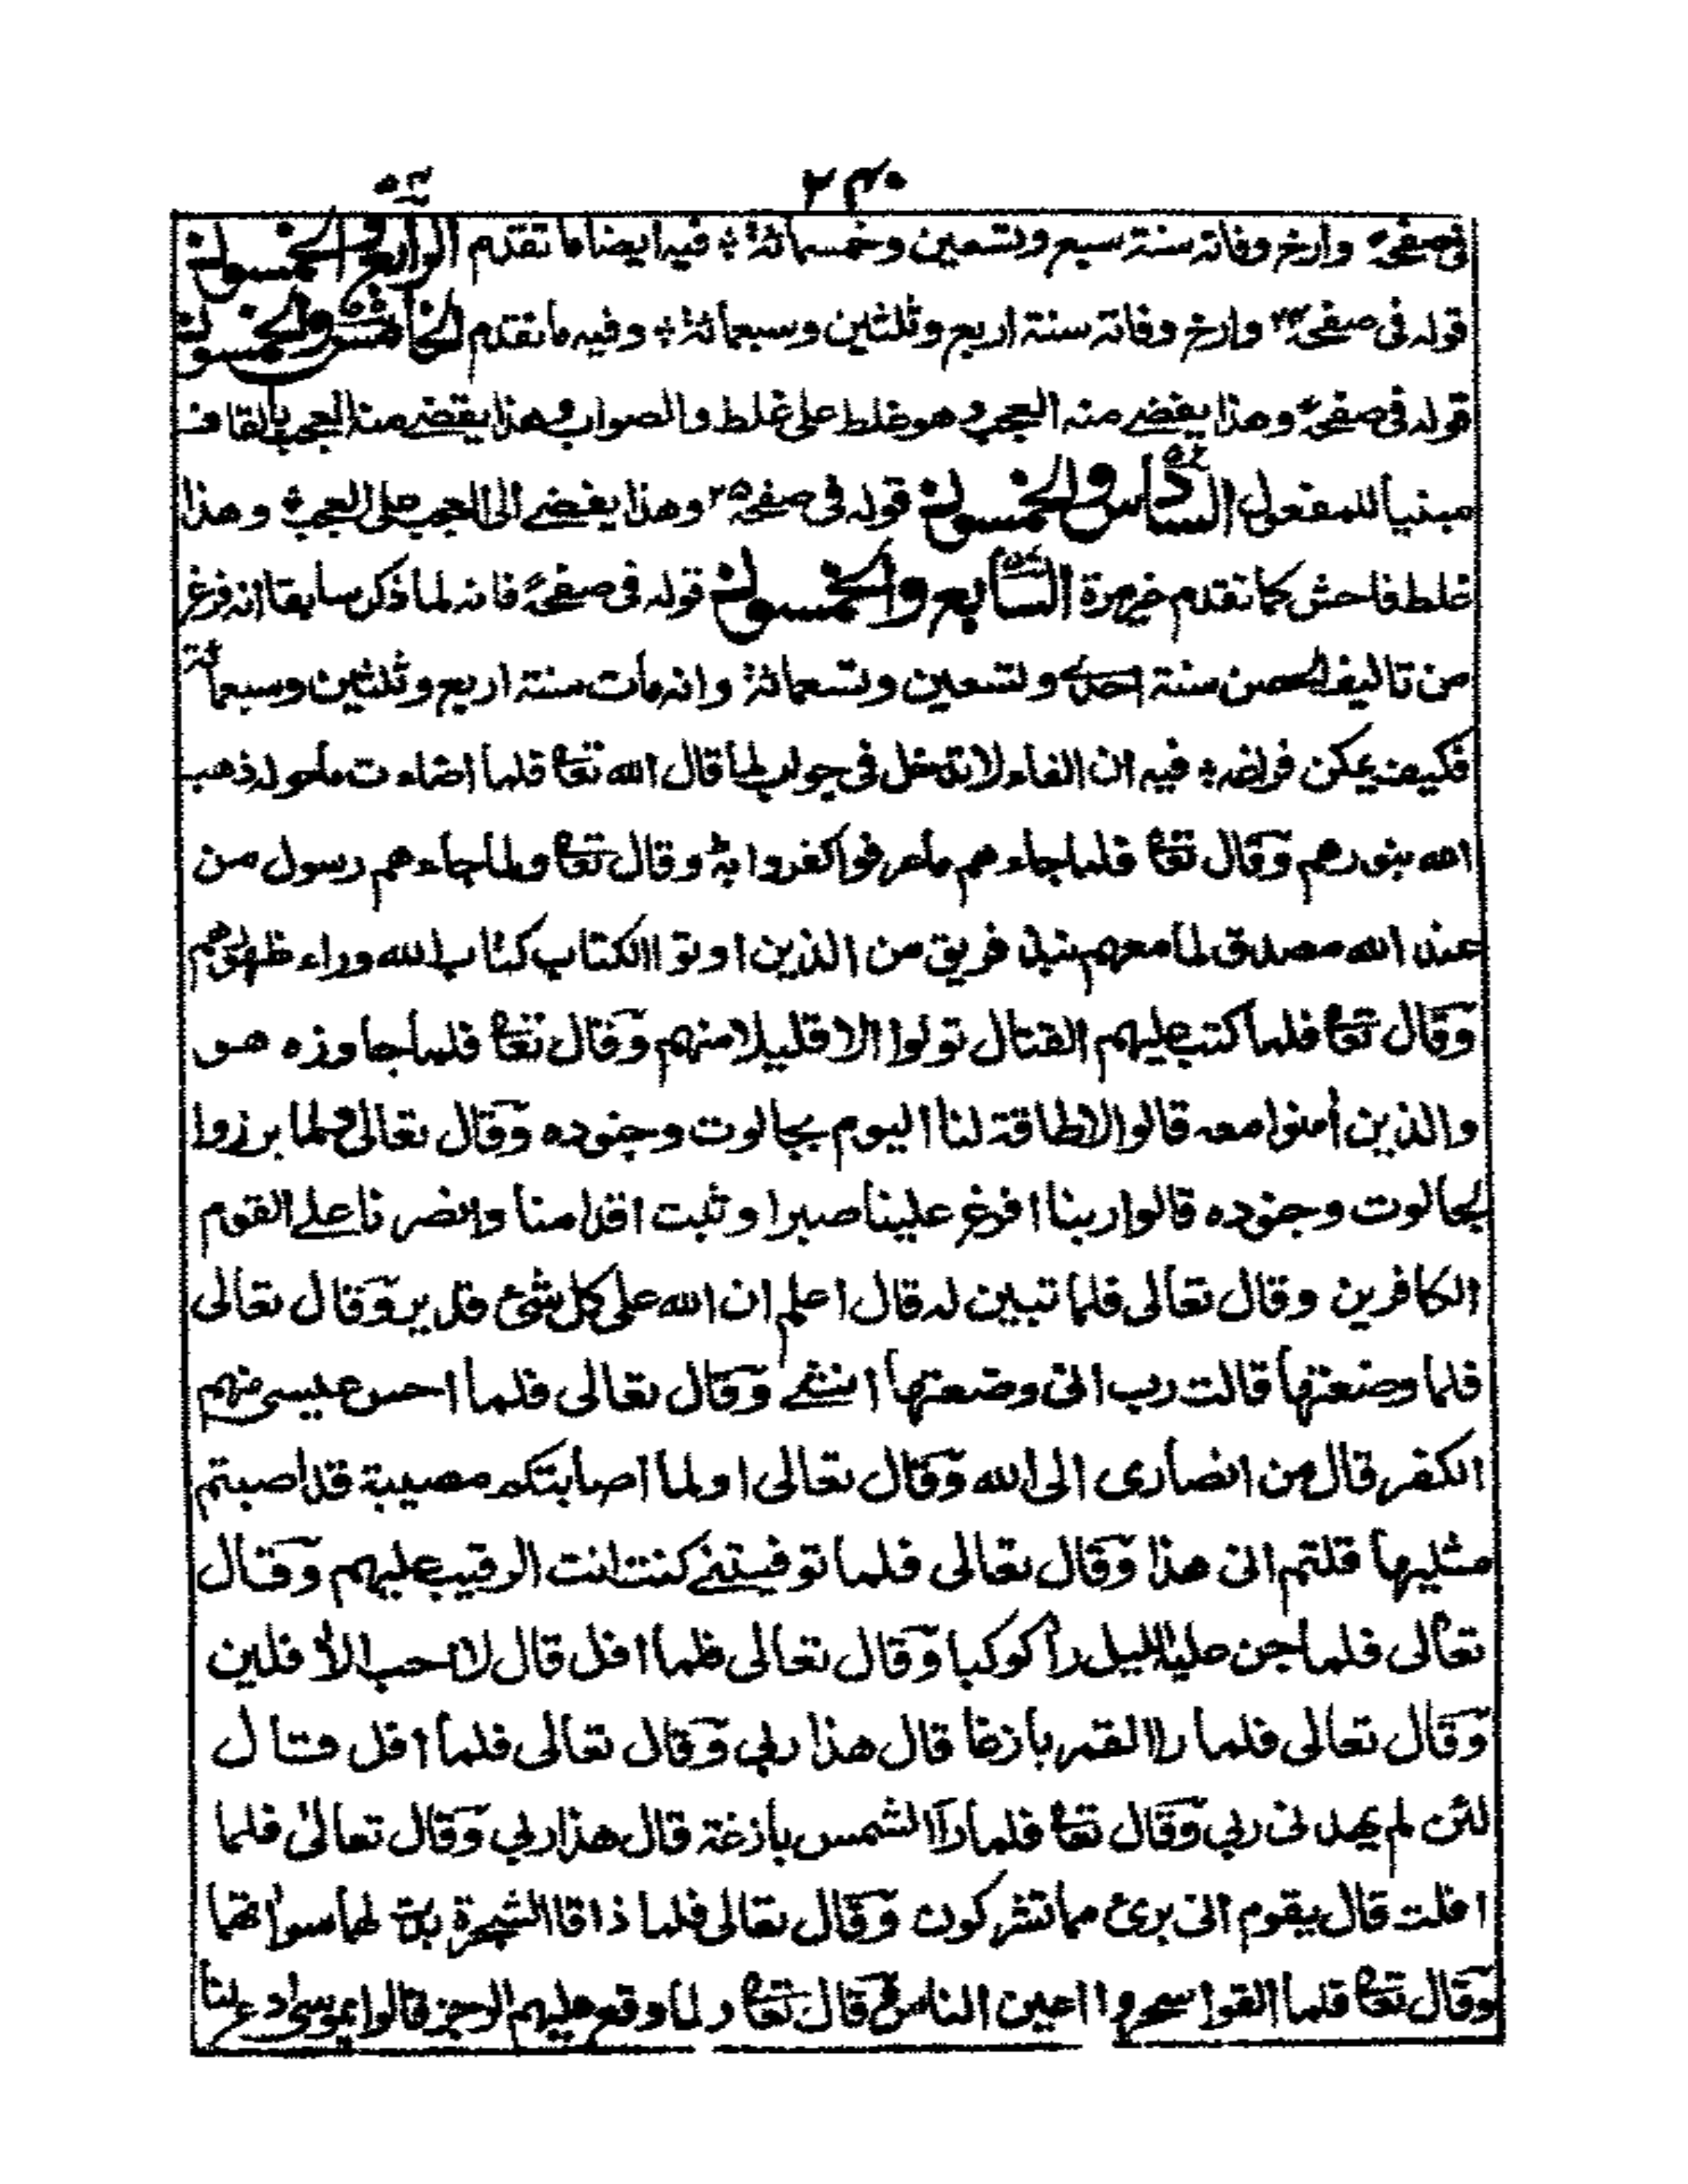 ٢٤٠
في صفحة وارخ وفاته سنة سبع وتسعين وخمسمائة فيه ايضا ما تقدم الرابع والخمسون
قوله في صفحة ٢٣ وارخ وفاته سنة اربع وثلثين وسبعمائة وفيه ما تقدم الخامس والخمسون
قوله في صفحة وهذا يفضى منه العجب وهو غلط على غلط والصواب وهذا يقضى منه العجب بالقاف
مبنيا للمفعول السادس والخمسون قوله في صفحة ٢٥ وهذا يفضى الى العجب على العجب وهذا
غلط فاحش كما تقدم غير مرة السابع والخمسون قوله في صفحة فانه لما ذكر سابقا انه فرغ
من تاليف الحصن سنة احدى وتسعين وتسعمائة وانه مات سنة اربع وثلثين وسبعمائة
فكيف يمكن فراغه فيه ان الفاء لا تدخل في جواب لما قال الله تعا فلما اضاءت ما حوله ذهب
الله بنورهم وقال تعا فلما جاءهم ما عرفوا كفروا به وقال تعا ولما جاءهم رسول من
عند الله مصدق لما معهم نبذ فريق من الذين اوتوا الكتاب كتاب الله وراء ظهورهم
وقال تعا فلما كتب عليهم القتال تولوا الا قليلا منهم وقال تعا فلما جاوزه هو
والذين أمنوا معه قالوا لا طاقة لنا اليوم بجالوت وجنوده وقال تعالى ولما برزوا
لجالوت وجنوده قالوا ربنا افرغ علينا صبرا وثبت اقدامنا وانصرنا على القوم
الكافرين وقال تعالى فلما تبين له قال اعلم ان الله على كل شئ قدير وقال تعالى
فلما وضعتها قالت رب انى وضعتها انثى وقال تعالى فلما احس عيسى منهم
الكفر قال من انصارى الى الله وقال تعالى اولما اصابتكم مصيبة قد اصبتم
مثليها قلتم انى هذا وقال تعالى فلما توفيتنى كنت انت الرقيب عليهم وقال
تعالى فلما جن عليه الليل رأ كوكبا وقال تعالى فلما افل قال لا احب الأفلين
وقال تعالى فلما را القمر بازغا قال هذا ربي وقال تعالى فلما افل قال
لئن لم يهدنى ربي وقال تعا فلما رآ الشمس بازغة قال هذا ربي وقال تعالى فلما
افلت قال يقوم انى برئ مما تشركون وقال تعالى فلما ذاقا الشجرة بدت لهما سواتهما
وقال تعا فلما القوا سحروا اعين الناس وقال تعا ولما وقع عليهم الرجز قالوا يموسى ادع لنا